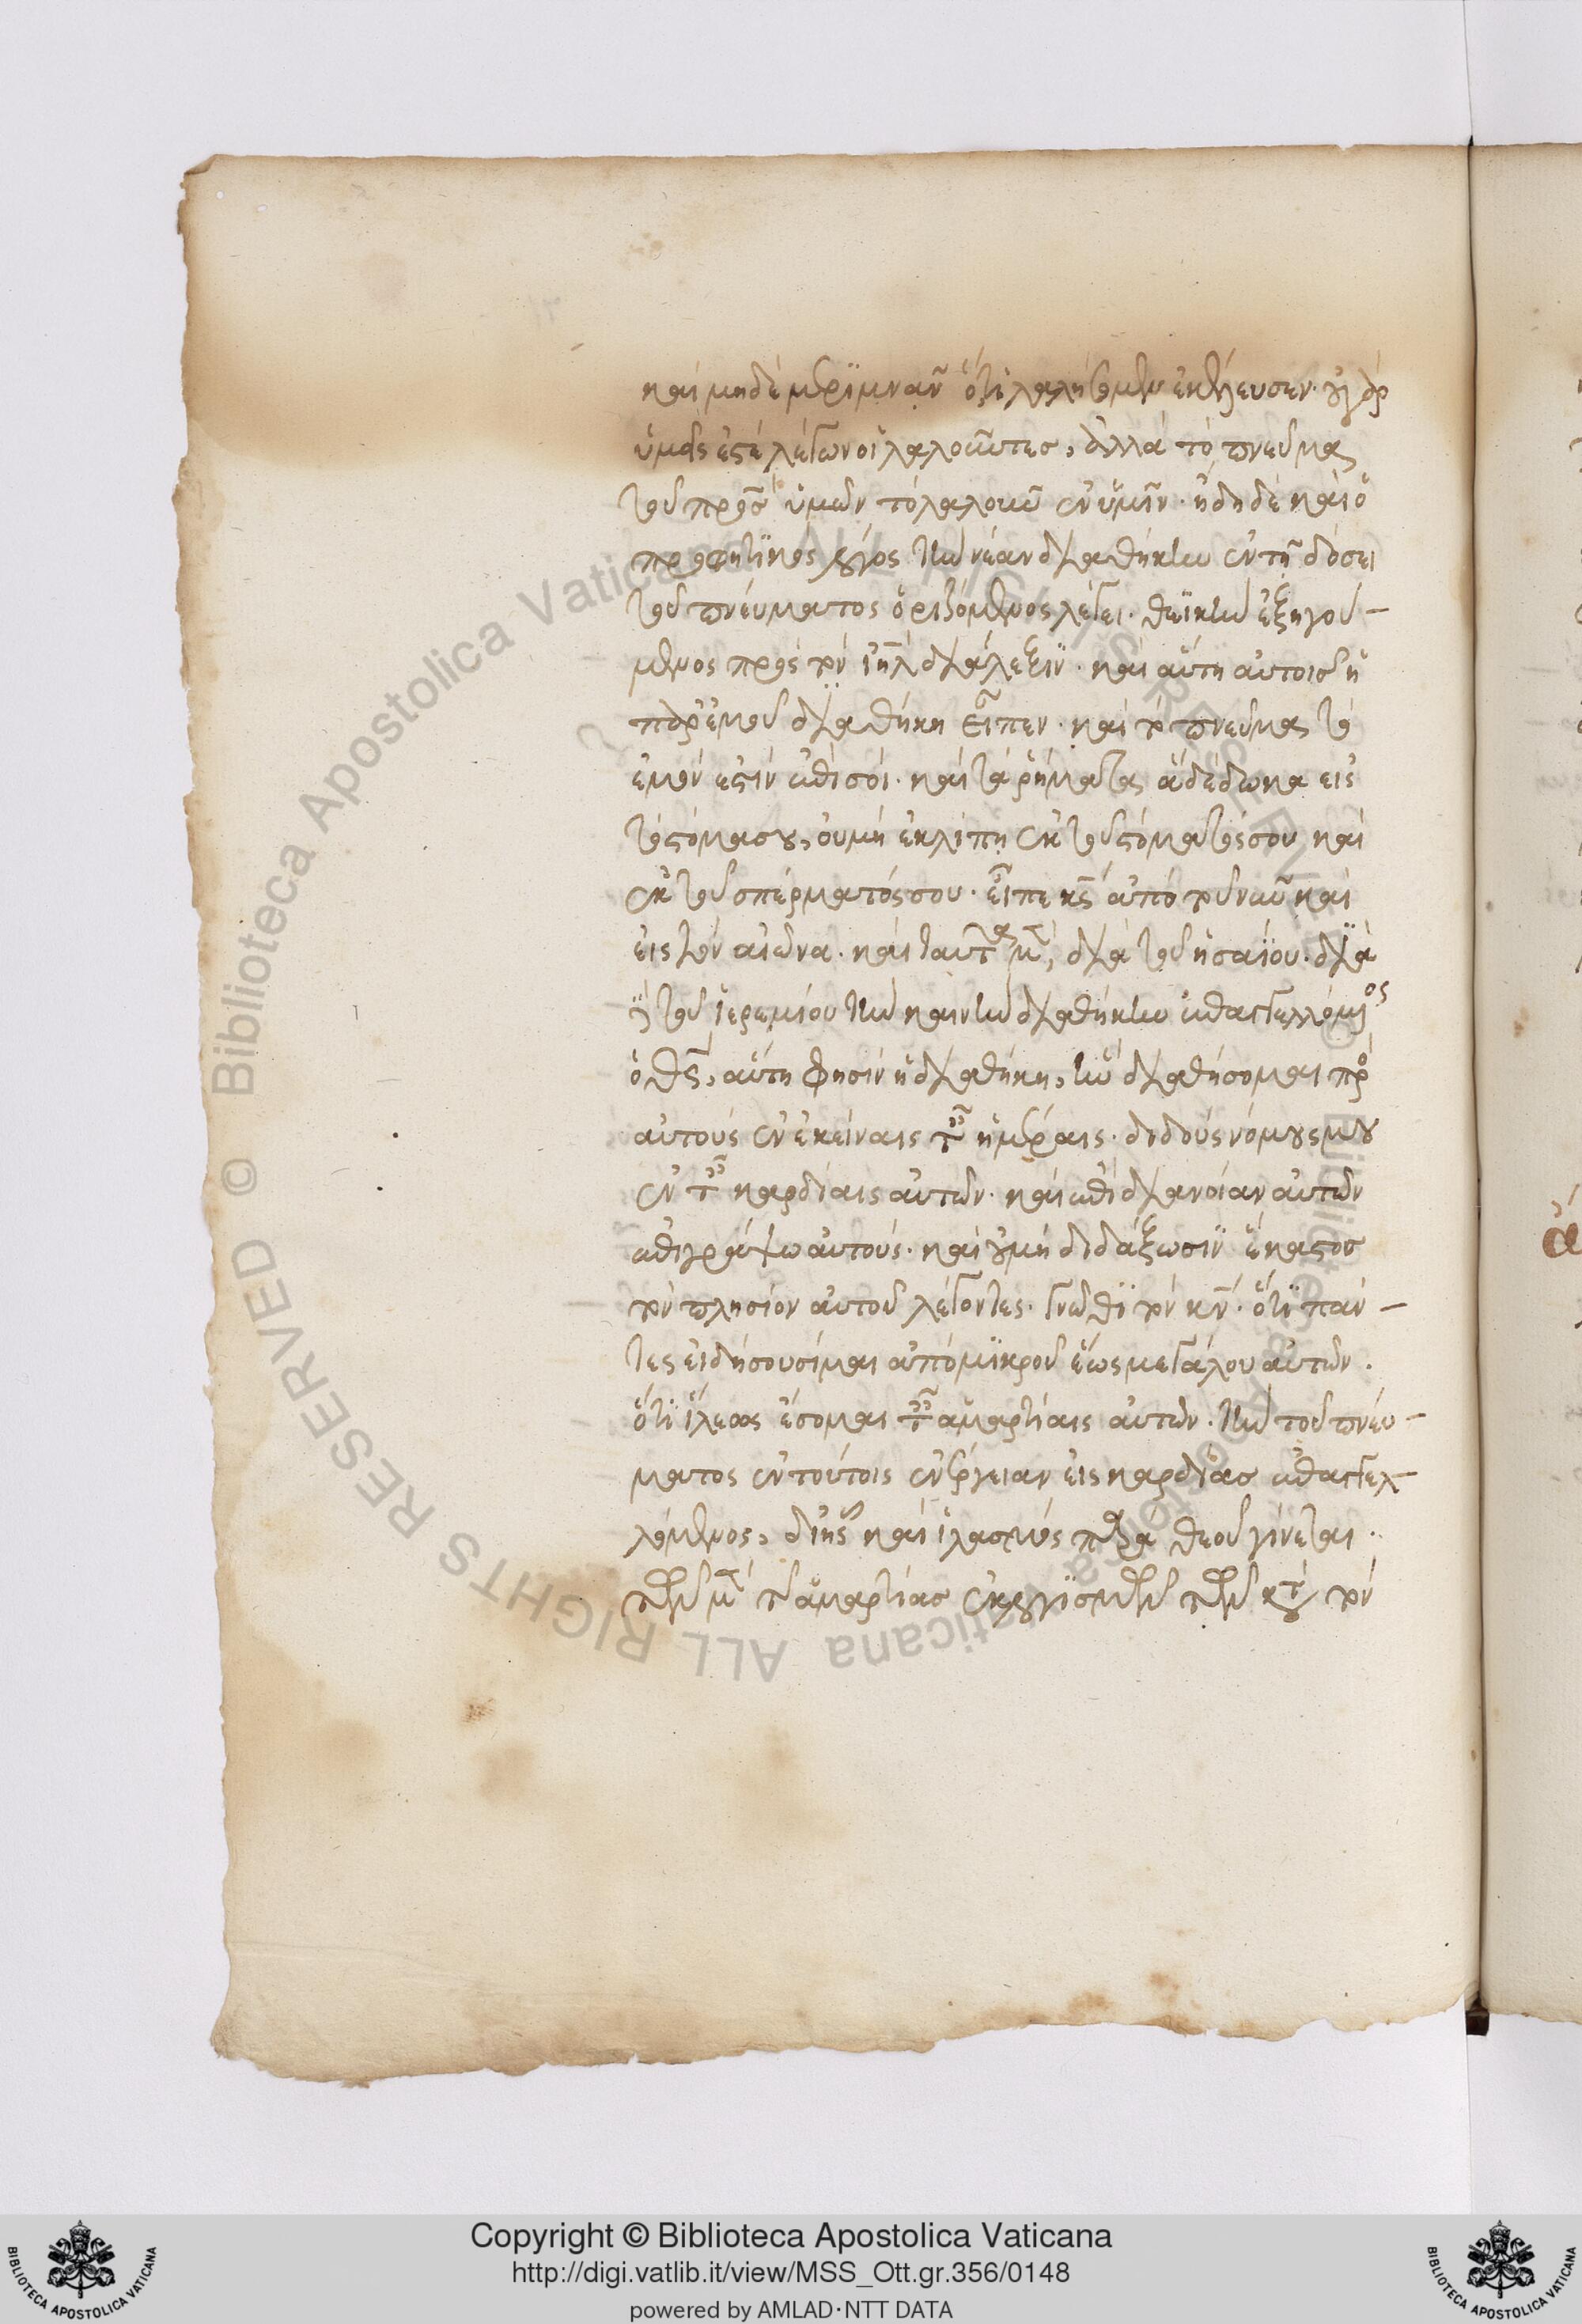 καὶ μηδὲ μεριμνᾶν ὅτι λαλήσομεν ἐκέλευσεν· οὐ γὰρ
ὑμεῖς ἐστέ λέγων οἱ λαλοῦντες, ἀλλὰ τὸ πνεῦμα
τοῦ πρ̅σ̅ ὑμῶν τὸ λαλοῦν ἐν ὑμῖν· ἤδη δὲ καὶ ὁ
προφητικὸς λόγος τὴν νέαν διαθήκην ἐν τῇ δόσει
τοῦ πνεύματος ὁριζόμενος λέγει· θεϊκὴν ἐξηγού-
μενος πρὸς τὸν ι̅η̅λ̅ διάλεξιν· καὶ αὕτη αὐτοῖς ἡ
παρ' ἐμοῦ διαθήκη εἶπεν· καὶ τὸ πνεῦμα τὸ
ἐμόν ἐστιν ἐπὶ σοί· καὶ τὰ ῥήματα ἃ δέδωκα εἰς
τὸ στόμα σου, οὐ μὴ ἐκλίπη ἐκ τοῦ στόματός σου καὶ
ἐκ τοῦ σπέρματός σου· εἶπε κ̅ς̅ ἀπὸ τοῦ νῦν καὶ
εἰς τὸν αἰῶνα· καὶ ταῦτα μὲν, διὰ τοῦ ἡσαΐου· διὰ
δὲ τοῦ ἱερεμίου τὴν καινὴν διαθήκην ἐπαγγελλόμενος
ὁ θ̅ς̅, αὕτη φησὶν ἡ διαθήκη, ἣν διαθήσομαι πρὸς
αὐτοὺς ἐν ἐκείναις ταῖς ἡμέραις· διδοὺς νόμους μου
ἐν ταῖς καρδίαις αὐτῶν· καὶ ἐπὶ διάνοιαν αὐτῶν
ἐπιγράψω αὐτούς· καὶ οὐ μὴ διδάξωσιν ἕκαστος
τὸν πλησίον αὐτοῦ λέγοντες· γνῶθι τὸν κ̅ν̅· ὅτι πάν-
τες εἰδήσουσί με ἀπὸ μικροῦ ἕως μεγάλου αὐτῶν·
ὅτι ἵλεως ἔσομαι ταῖς ἁμαρτίαις αὐτῶν· τὴν τοῦ πνεύ-
ματος ἐν τούτοις ἐνέργειαν εἰς καρδίας ἐπαγγελ-
λόμενος, δι' ἧς καὶ ἱλασμὸς παρὰ θεοῦ γίνεται·
τῶν μὲν τῆς ἁμαρτίας ἐκ λογισμῶν τῶν κατὰ τὸν